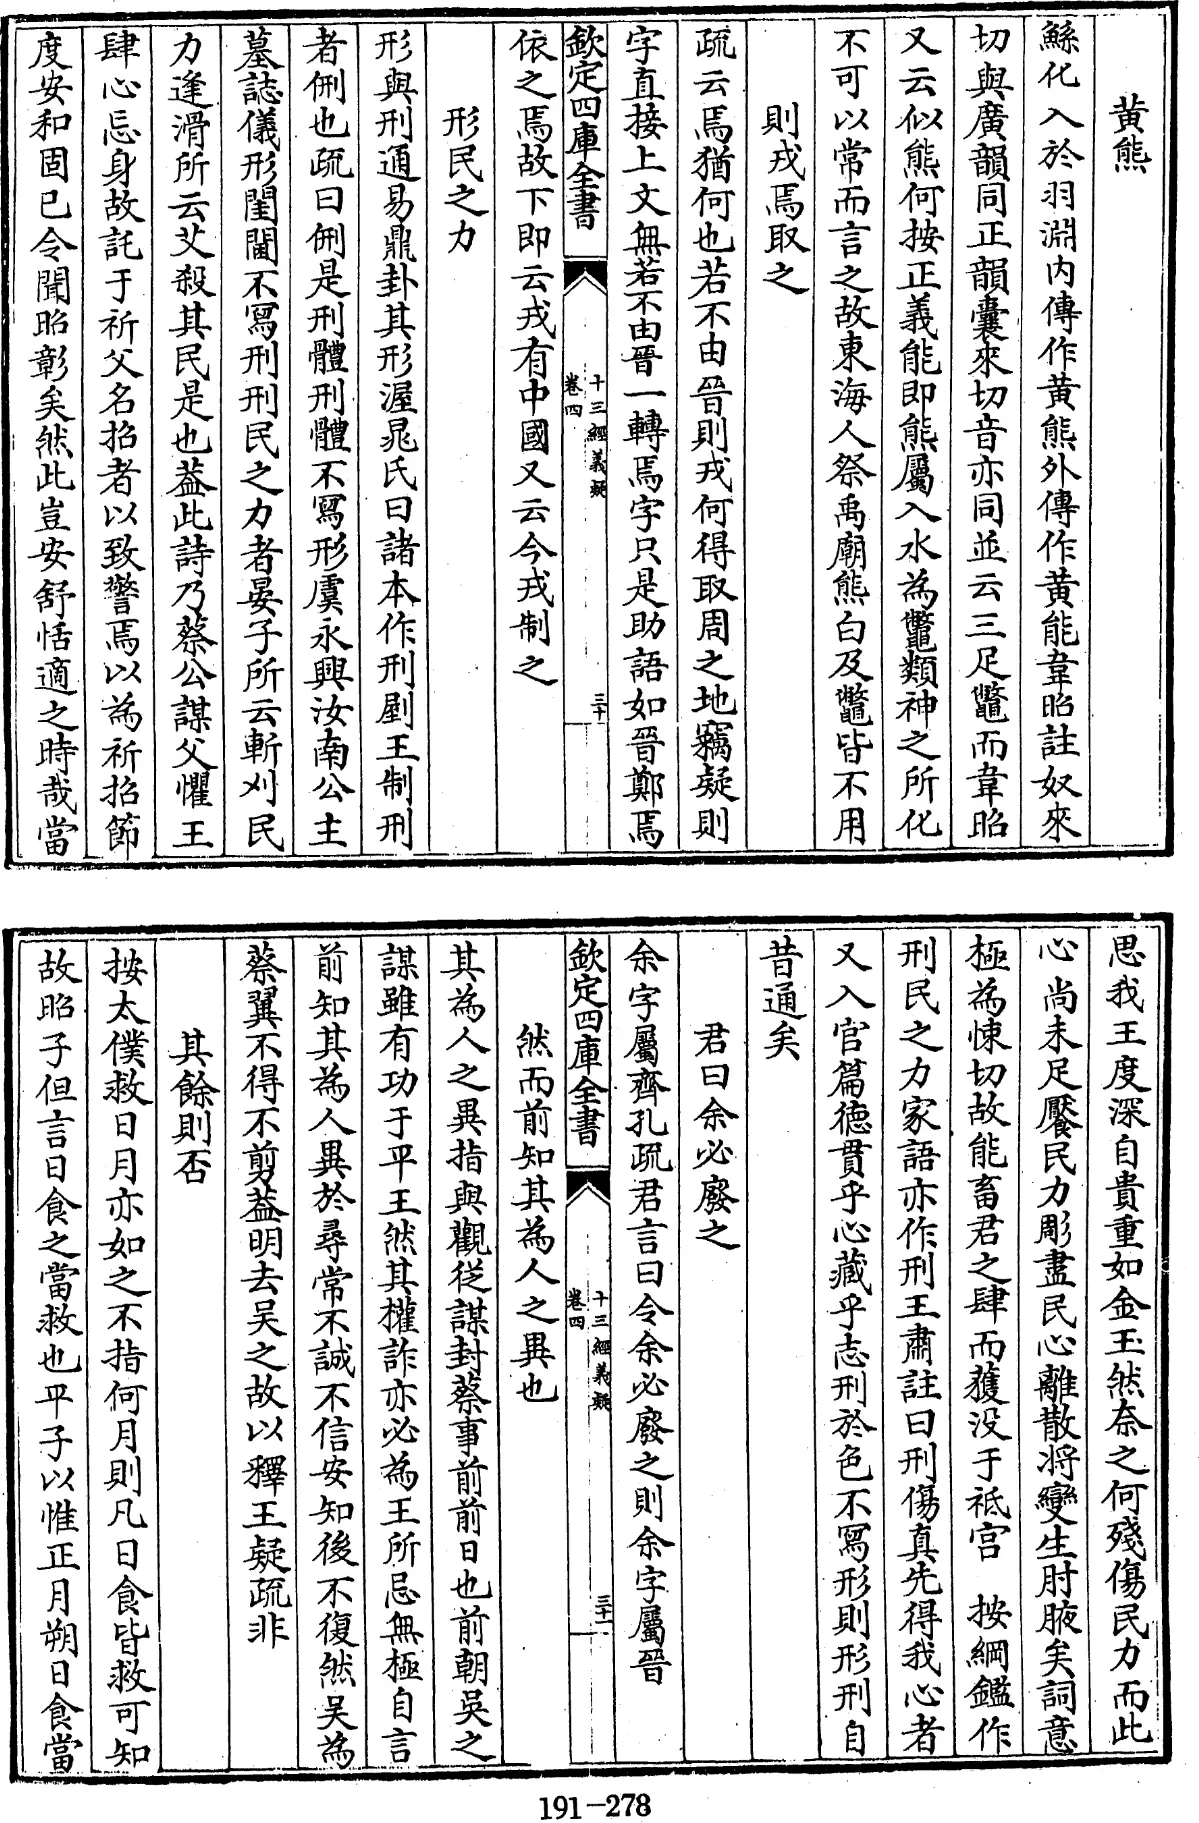 黄熊
鯀化入於羽淵内傳作黄熊外傳作黄能韋昭註奴來
切與廣韻同正韻囊來切音亦同並云三足鼈而韋昭
又云似熊何按正義能即熊屬入水為鼈類神之所化
不可以常而言之故東海人祭禹廟熊白及鼈皆不用
則戎焉取之
疏云焉猶何也若不由晉則戎何得取周之地竊疑則
字直接上文無若不由晉一轉焉字只是助語如晉鄭焉
欽定四庫全書
十三經義疑
卷四
三十
依之焉故下即云戎有中國又云今戎制之
形民之力
形與刑通易鼎卦其形渥晁氏曰諸本作刑剭王制刑
者侀也疏曰侀是刑體刑體不寫形虞永興汝南公主
墓誌儀形閨閫不寫刑刑民之力者晏子所云斬刈民
力逢滑所云艾殺其民是也葢此詩乃蔡公謀父懼王
肆心忘身故託于祈父名招者以致警焉以為祈招節
度安和固已令聞昭彰矣然此豈安舒恬適之時哉當
思我王度深自貴重如金玉然奈之何殘傷民力而此
心尚未足饜民力彫盡民心離散将變生肘腋矣詞意
極為悚切故能畜君之肆而獲没于祗宫 按綱鑑作
刑民之力家語亦作刑王肅註曰刑傷真先得我心者
又入官篇徳貫乎心藏乎志刑於色不寫形則形刑自
昔通矣
君曰余必廢之
余字屬齊孔疏君言曰令余必廢之則余字屬晉
欽定四庫全書
十三經義疑
卷四
三十一
然而前知其為人之異也
其為人之異指與觀從謀封蔡事前前日也前朝吳之
謀雖有功于平王然其權詐亦必為王所忌無極自言
前知其為人異於尋常不誠不信安知後不復然吴為
蔡翼不得不剪葢明去吴之故以釋王疑疏非
其餘則否
按太僕救日月亦如之不指何月則凡日食皆救可知
故昭子但言日食之當救也平子以惟正月朔日食當
191-278